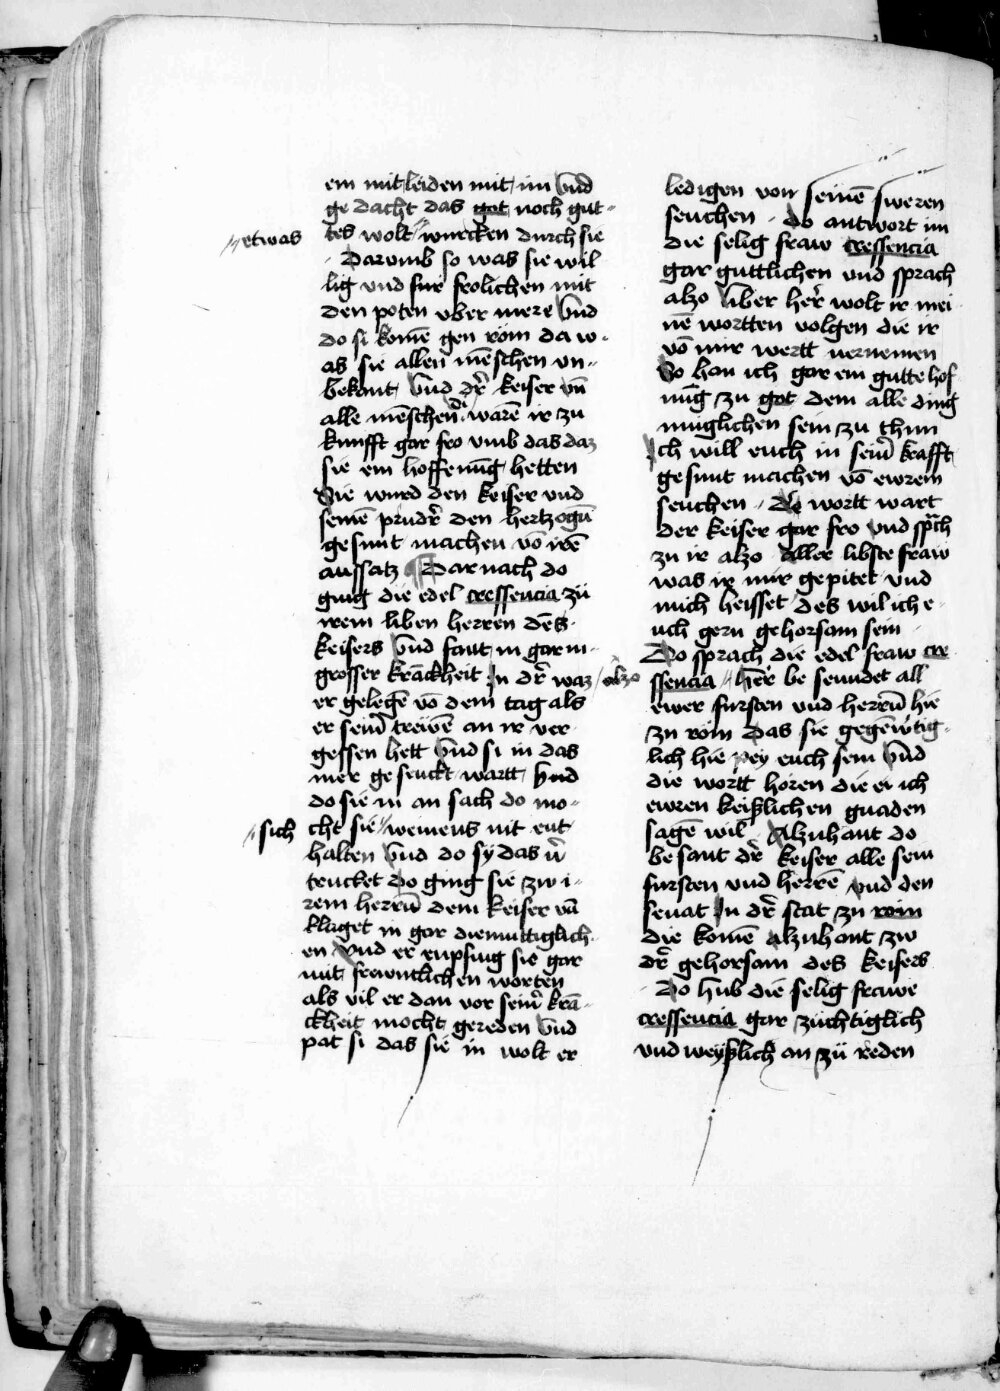 ein mitleiden mit im vnd
gedacht das got noch gut-
etwas
tes wolt wurcken durch sie
Darumb so was sie wil
lig vnd fur frolichen mit
den poten vber mere vnd
do si komē gen röm da w-
as sie allen mēschen vn-
bekant vnd dr̄ keiser vn̄
alle mēschen warē ir zu
kunfft gar fro vmb das daz
sie ein hoffenūg hetten
Sie wurd den keiser vnd
seinē prudr̄ den hertzogn̄
gesunt machen vō irē
aussatz Darnach do
ging die edel cressencia zü
irem liben herren des
keisers vnd fant in gar in
grosser kranckheit In dr̄ waz
er gelegē vō dem tag als
er seinr̄ trewē an ir ver
gessen hett vnd si in das
mer gesenckt wartt vnd
do sie in an sach do mo-
sich
cht sie weinens nit ent
halten vnd do sy das v̄
trucket do ging sie zw i-
rem herrn̄ dem keiser vn̄
klaget in gar diemuttiglich
en vnd er enpfing sie gar
mit frewntlichen worten
als vil er dan vor seinr̄ krā-
ckheit mocht gereden vnd
pat si das sie in wolt er
ledigen von seinē sweren
seuchen do antwort im
die selig fraw cressencia
gar guttlichen vnd sprach
alzo liber her̄ wolt ir mei
nē wortten volgen die ir
vō mir wertt vernemen
So han ich gar ein gutte hof
nūg zu got dem alle ding
muglichen sein zu thun
Ich will euch in seinr̄ krafft
gesunt machen vō ewrem
seuchen Dr̄ wortt wart
der keiser gar fro vnd sprach
zu ir alzo Aller libste fraw
was ir mir gepitet vnd
mich heisset des wil ich e-
uch gern gehorsam sein
Do sprach die edel fraw cre
alzo
ssencia her̄ besenndet all
ewer fursten vnd herrn̄ hie
zu röm Das sie gegēwrtig-
lich hie pey euch sein vnd
die wortt horen die ei ich
ewren keißlichen gnaden
sagē wil Alzuhant do
besant dr̄ keiser alle sein
fursten vnd herrē vnd den
senat In dr̄ stat zu röm
die komē alzuhant zw
dr̄ gehorsam des keisers
Do hub die selig frawe
cressencia gar züchtiglich
vnd weyßlich an zü reden